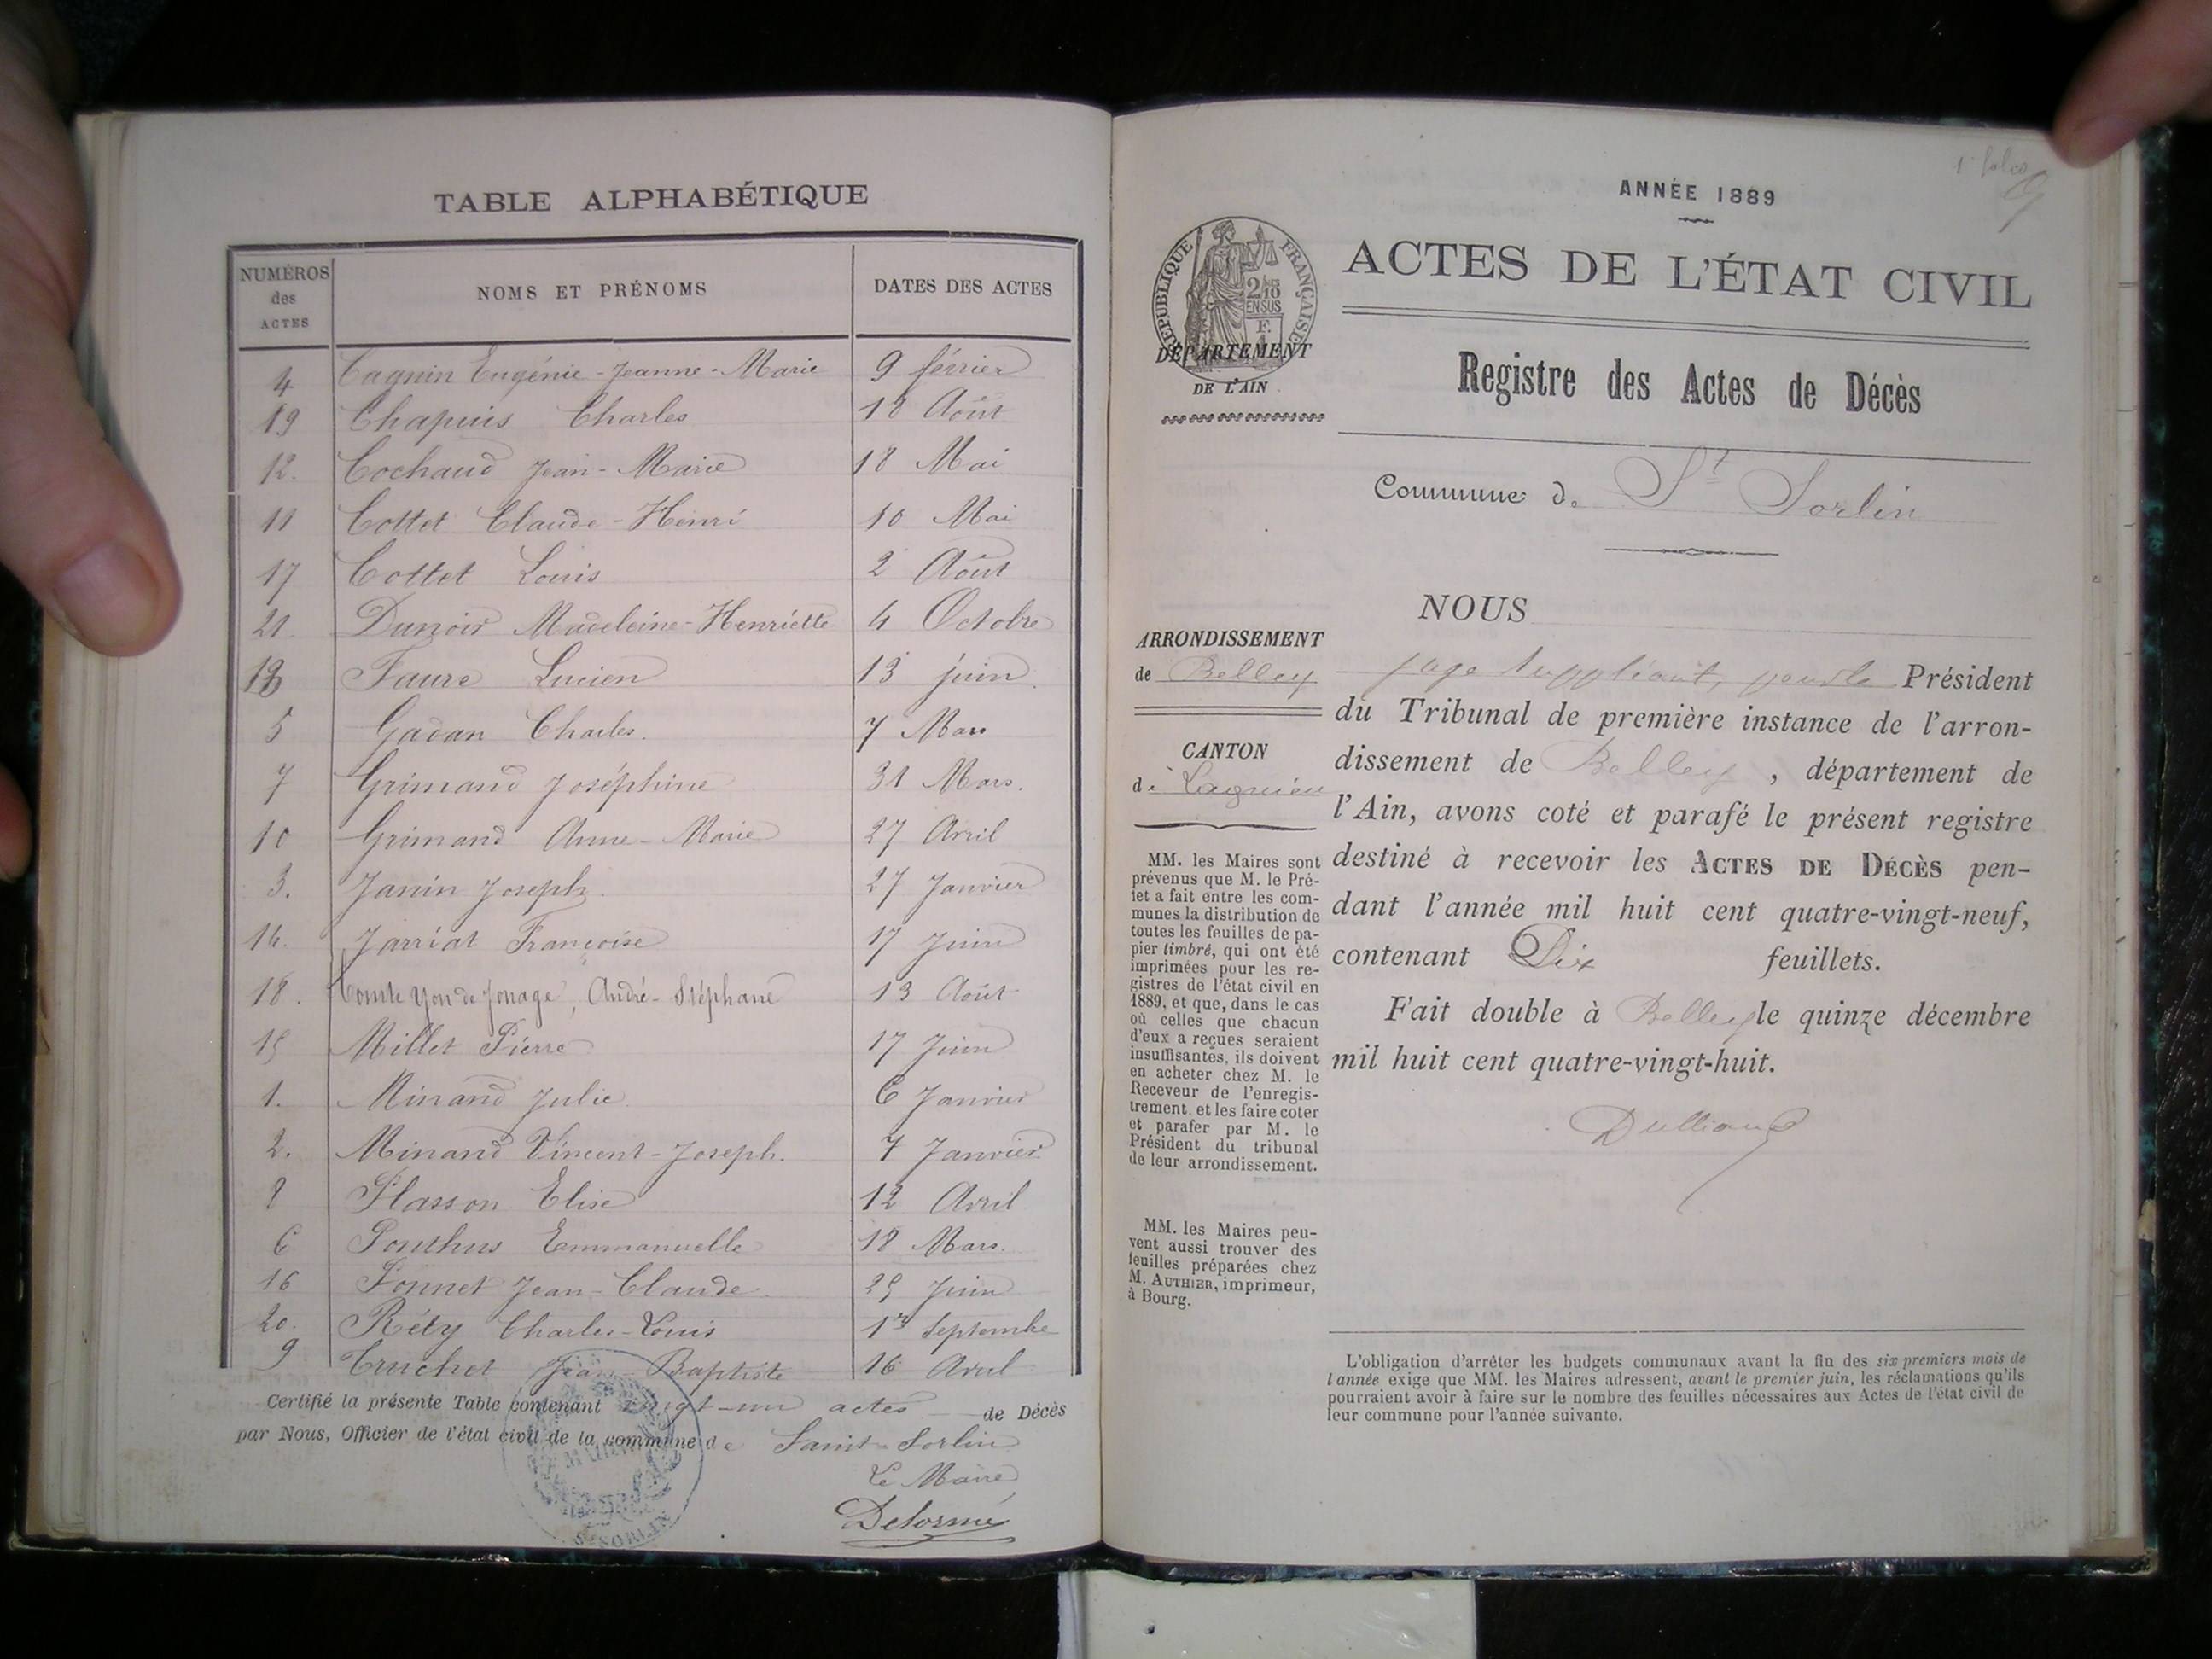 TABLE ALPHABÉTIQUE
NUMÉROS des ACTES NOMS ET PRÉNOMS DATES DES ACTES
4 Cagnin Eugénie-Jeanne-Marie 9 février
19 Chapuis Charles 18 Août
12. Cochaud Jean-Marie 18 Mai
11 Cottet Claude-Henri 10 Mai
17 Cottet Louis 2 Août
21 Dunoir Madeleine-Henriette 4 Octobre
13 Faure Lucien 13 juin
5 Gadan Charles. 7 Mars
7 Grimand Joséphine 31 Mars.
10 Grimand Anne-Marie 27 Avril
3. Janin Joseph. 27 Janvier
14. Jarriat Françoise 17 Juin
18. Comte Yon de Jonage, André-Stéphane 13 Août
15 Millet Pierre 17 Juin
1. Minand Julie 6 Janvier
2. Minand Vincent-Joseph. 7 Janvier
8 Plasson Elise 12 Avril
6 Ponthus Emmanuelle 18 Mars.
16 Ponnet Jean-Claude. 25 Juin
20. Réty Charles-Louis 1er Septembre
9 Truchet Jean-Baptiste 16 Avril
Certifié la présente Table contenant vingt-un actes de Décès
par Nous, Officier de l'état civil de la commune de Saint-Sorlin
Le Maire,
Delorme
1er folio
ANNÉE 1889
RÉPUBLIQUE FRANÇAISE
2/10 EN SUS
DÉPARTEMENT
DE L'AIN
ACTES DE L'ÉTAT CIVIL
Registre des Actes de Décès
Commune de St Sorlin
ARRONDISSEMENT
de Belley
CANTON
de Lagnieu
MM. les Maires sont
prévenus que M. le Pré-
fet a fait entre les com-
munes la distribution de
toutes les feuilles de pa-
pier timbré, qui ont été
imprimées pour les re-
gistres de l'état civil en
1889, et que, dans le cas
où celles que chacun
d'eux a reçues seraient
insuffisantes, ils doivent
en acheter chez M. le
Receveur de l'enregis-
trement, et les faire coter
et parafer par M. le
Président du tribunal
de leur arrondissement.
MM. les Maires peu-
vent aussi trouver des
feuilles préparées chez
M. AUTHIER, imprimeur,
à Bourg.
NOUS
juge suppléant, pour le Président
du Tribunal de première instance de l'arron-
dissement de Belley, département de
l'Ain, avons coté et parafé le présent registre
destiné à recevoir les ACTES DE DÉCÈS pen-
dant l'année mil huit cent quatre-vingt-neuf,
contenant Dix feuillets.
Fait double à Belley le quinze décembre
mil huit cent quatre-vingt-huit.
L'obligation d'arrêter les budgets communaux avant la fin des six premiers mois de
l'année exige que MM. les Maires adressent, avant le premier juin, les réclamations qu'ils
pourraient avoir à faire sur le nombre des feuilles nécessaires aux Actes de l'état civil de
leur commune pour l'année suivante.